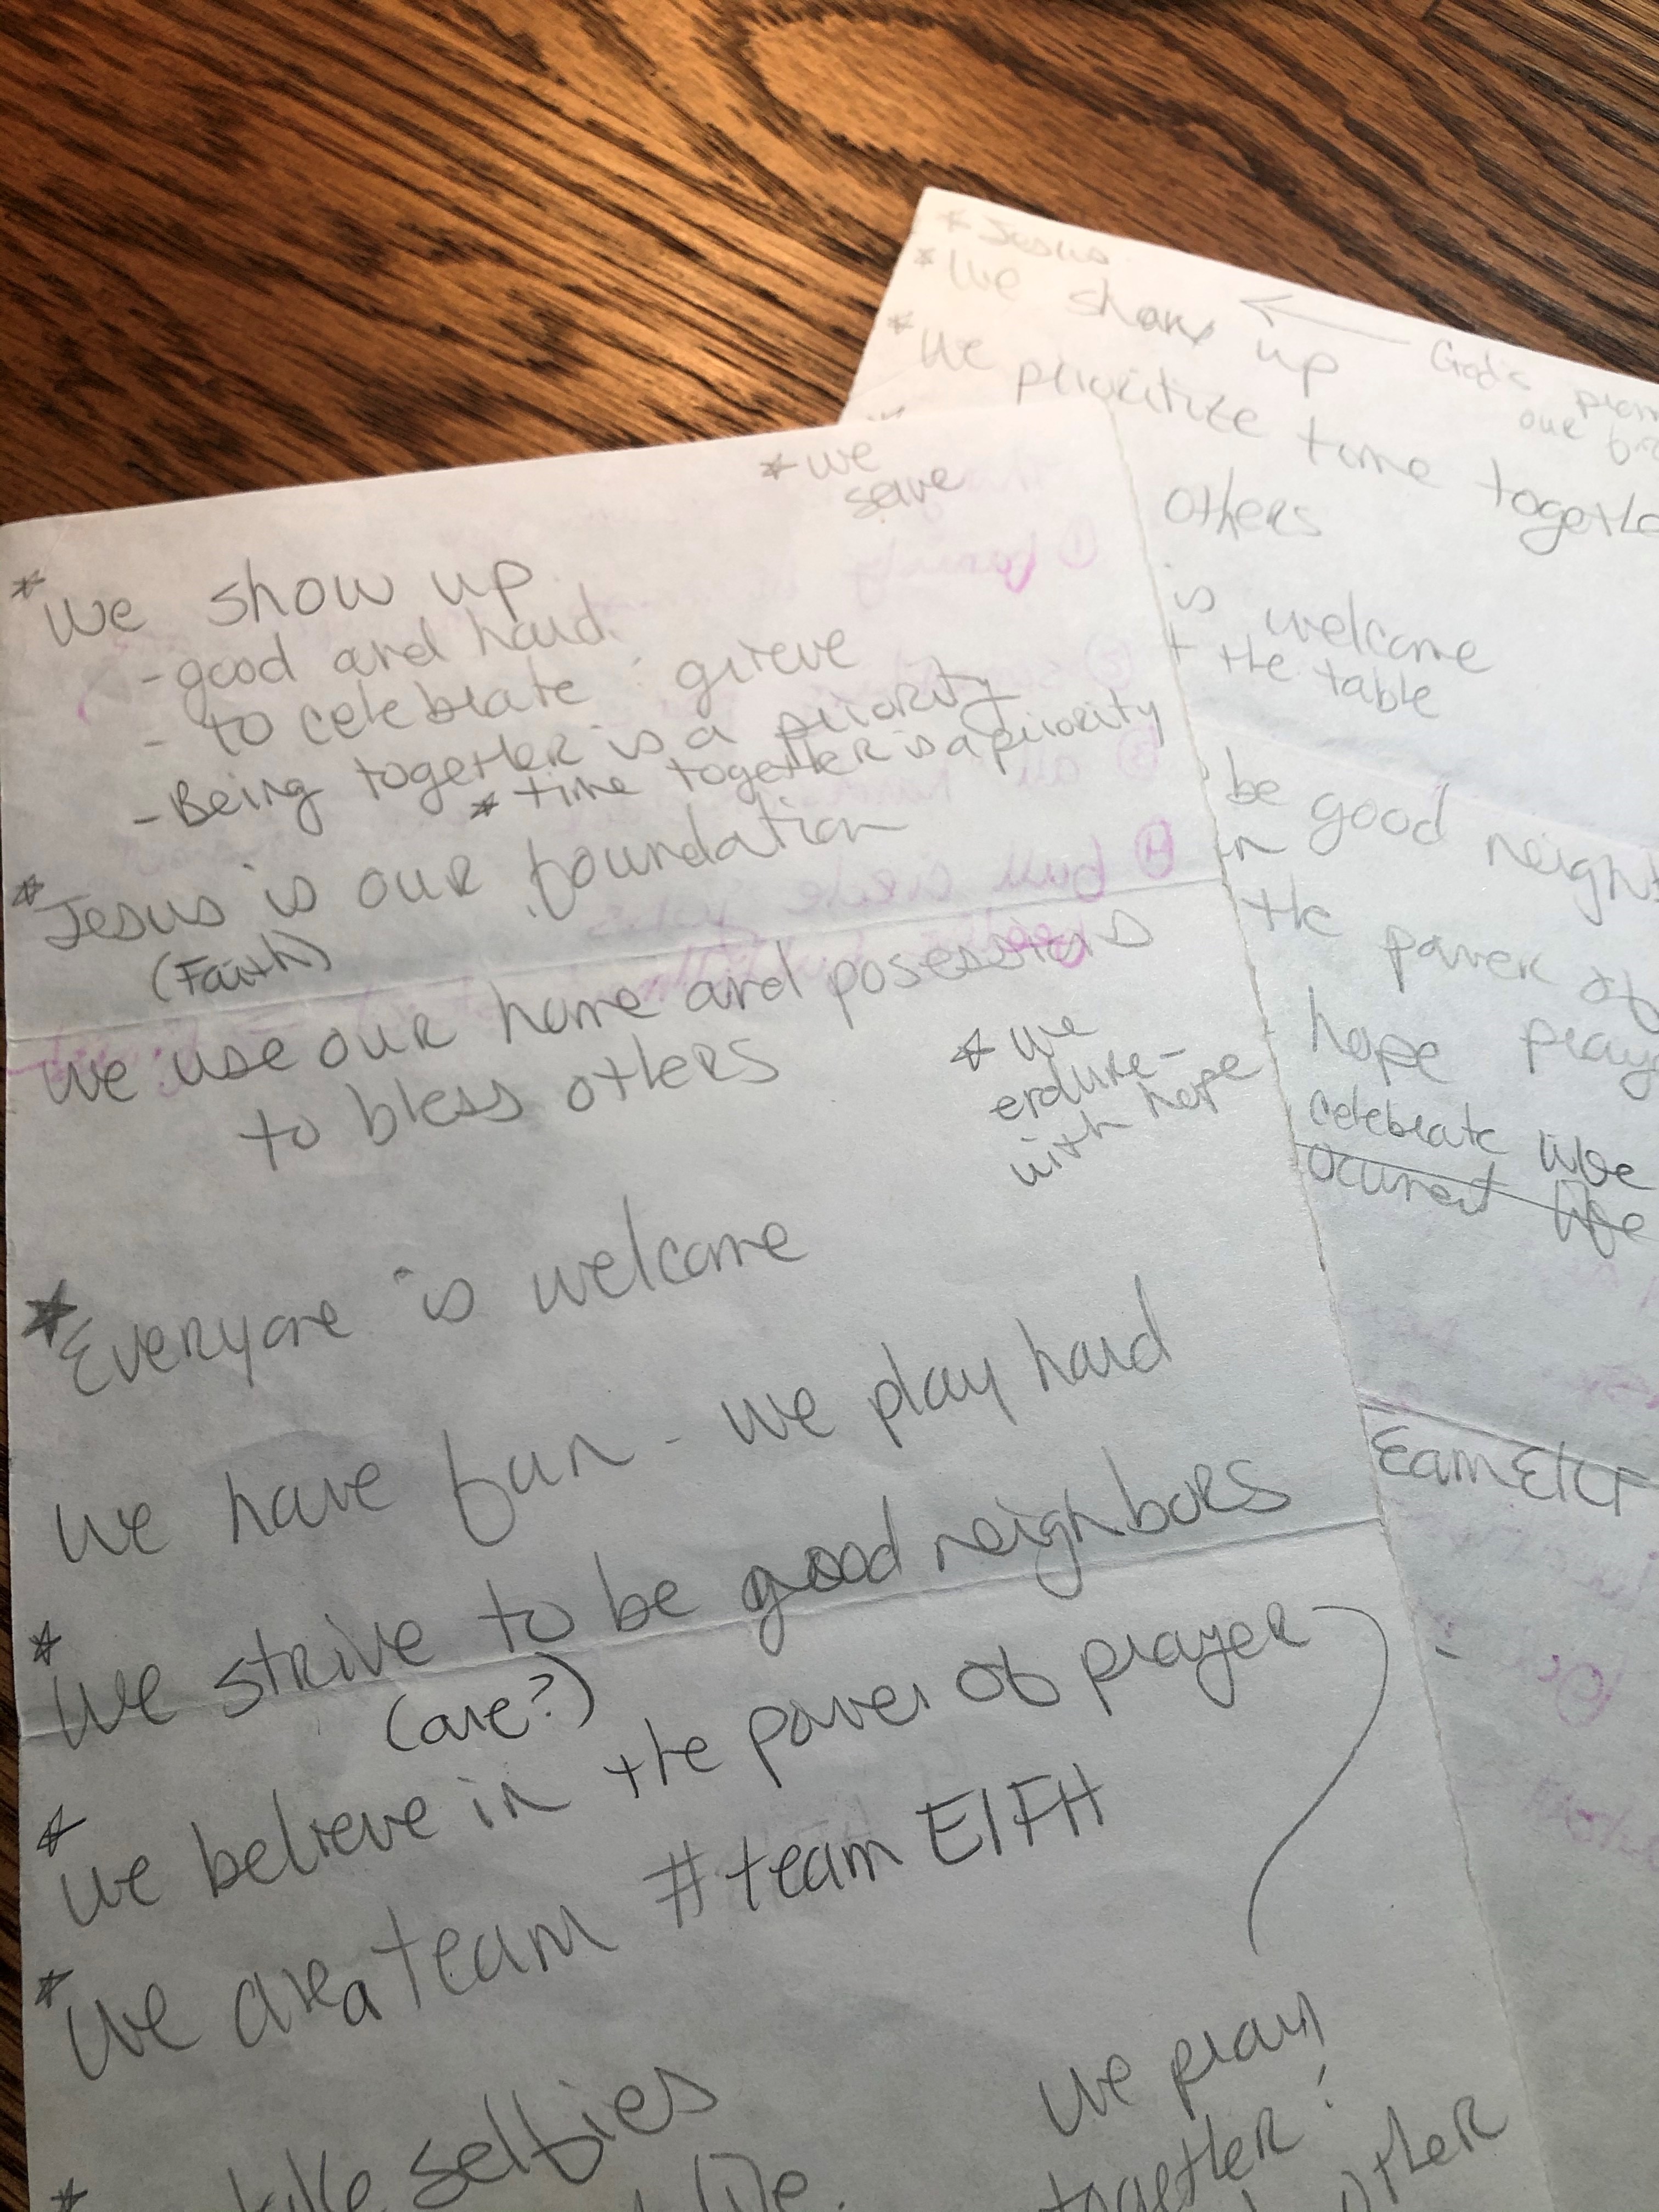 * we
serve
* We show up
- good and hard
- to celebrate : grieve
- Being together is a priority
* time together is a priority
* Jesus is our foundation
(Faith)
We use our home and posessions
to bless others
* we
endure -
with hope
* Everyone is welcome
We have fun - we play hard
* We strive to be good neighbors
(are?)
* We believe in the power of prayer
* We are a team #team EIFH
we pray
together :
other
* selfies
life.
* Jesus
* We show up ← God's
our
* We prioritize time together
others
is welcome
the table
be good
in
the power of
hope
celebrate